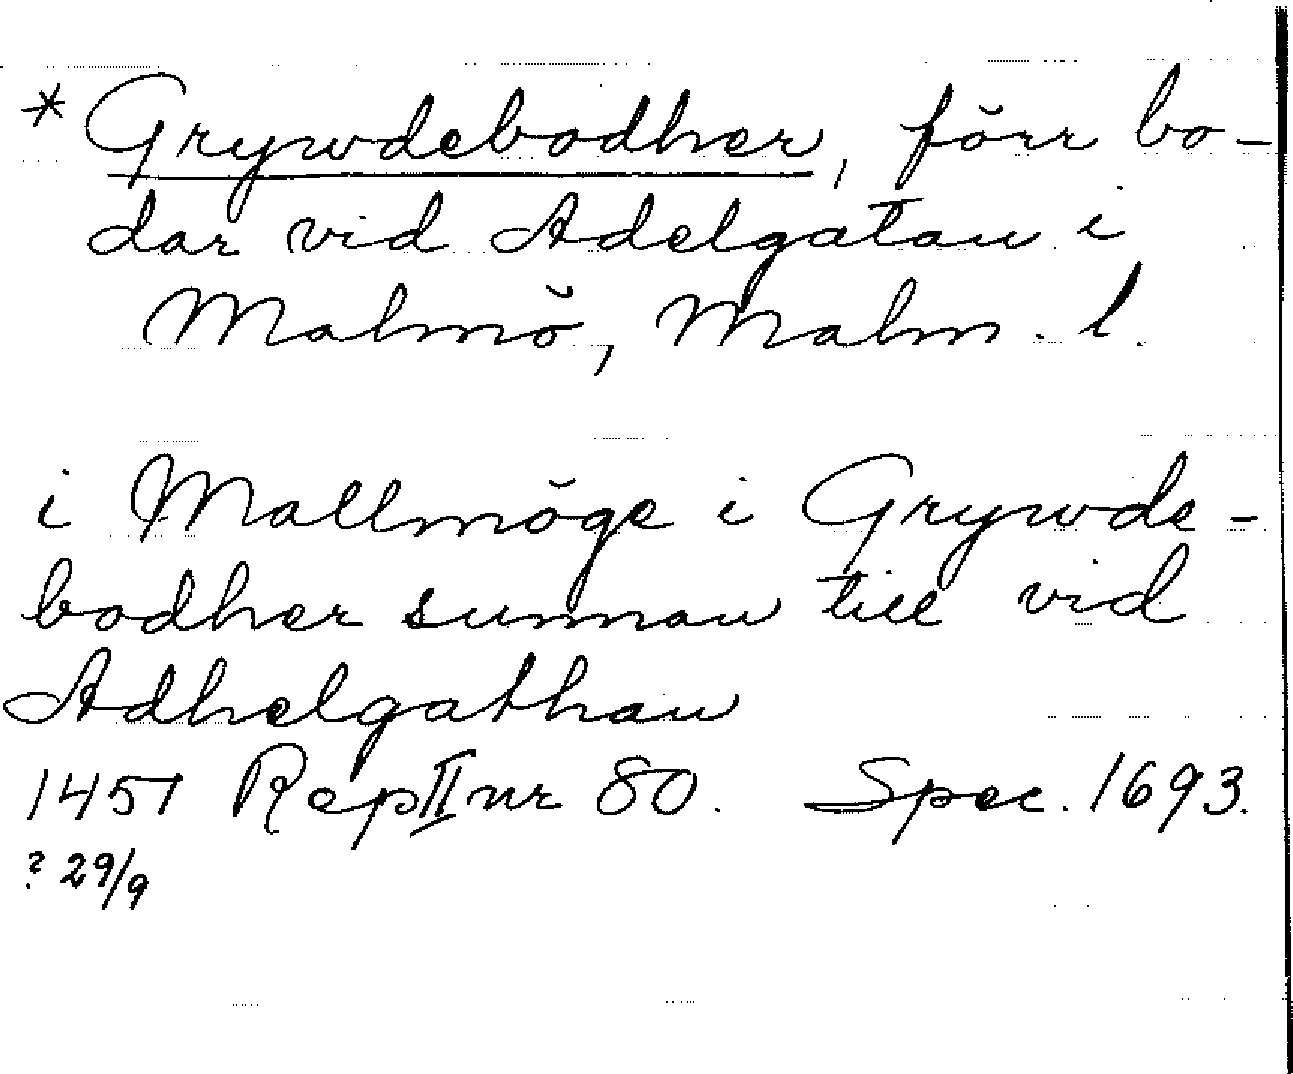 * Grywdebodher, förr bo-
dar vid Adelgatan i
Malmö, Malm. l.
i Mallmöge i Grywde-
bodher sunnan till vid
Adhelgathan
1451 Rep II nr 80. Spec. 1693.
? 29/9